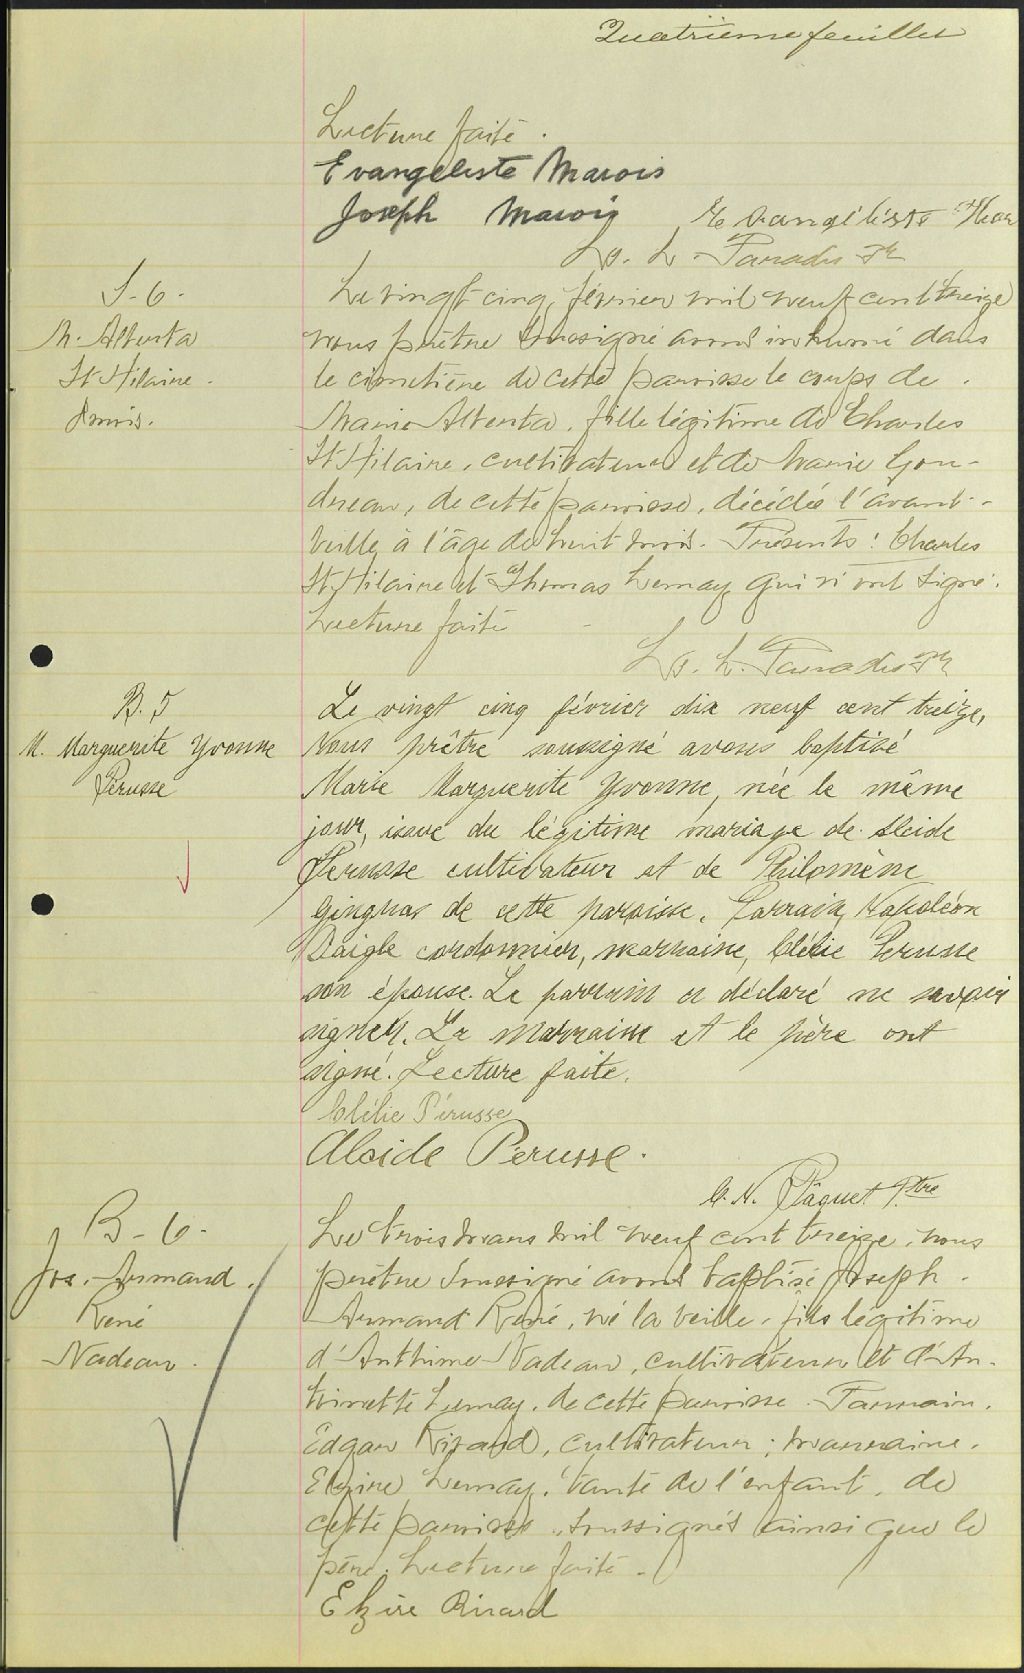 Quatrième feuillet
Lecture faite.
Evangeliste Marois
Joseph Marois Evangéliste
Ls. L. Paradis Ptr
S. 6.
M. Alberta
St Hilaire.
8 mois.
Le vingt-cinq février mil neuf cent treize
nous prêtre soussigné avons inhumé dans
le cimetière de cette paroisse le corps de
Marie Alberta, fille légitime de Charles
St Hilaire, cultivateur et de Marie Gou-
dreau, de cette paroisse, décédée l'avant-
veille, à l'âge de huit mois. Présents: Charles
St Hilaire et Thomas Lemay qui n'ont signé.
Lecture faite
Ls. L. Paradis Ptr
B. 5
M. Marguerite Yvonne
Pérusse
Le vingt cinq février dix neuf cent treize,
Nous prêtre soussigné avons baptisé
Marie Marguerite Yvonne, née le même
jour, issue du légitime mariage de Alcide
Perusse cultivateur et de Philomène
Gingras de cette paroisse. Parrain, Napoléon
Daigle cordonnier, marraine, Clélie Perusse
son épouse. Le parrain a déclaré ne savoir
signer. La marraine et le père ont
signé. Lecture faite.
Clélie Pérusse
Alcide Perusse.
C. N. Pâquet Ptre
B. 6.
Jos. Armand
René
Nadeau.
Le trois mars mil neuf cent treize, nous
prêtre soussigné avons baptisé Joseph
Armand René, né la veille, fils légitime
d'Anthime Nadeau, cultivateur et d'An-
toinette Lemay, de cette paroisse. Parrain,
Edgar Rivard, cultivateur; marraine,
Elzire Lemay, tante de l'enfant, de
cette paroisse, soussignés ainsi que le
père. Lecture faite.
Elzire Rivard